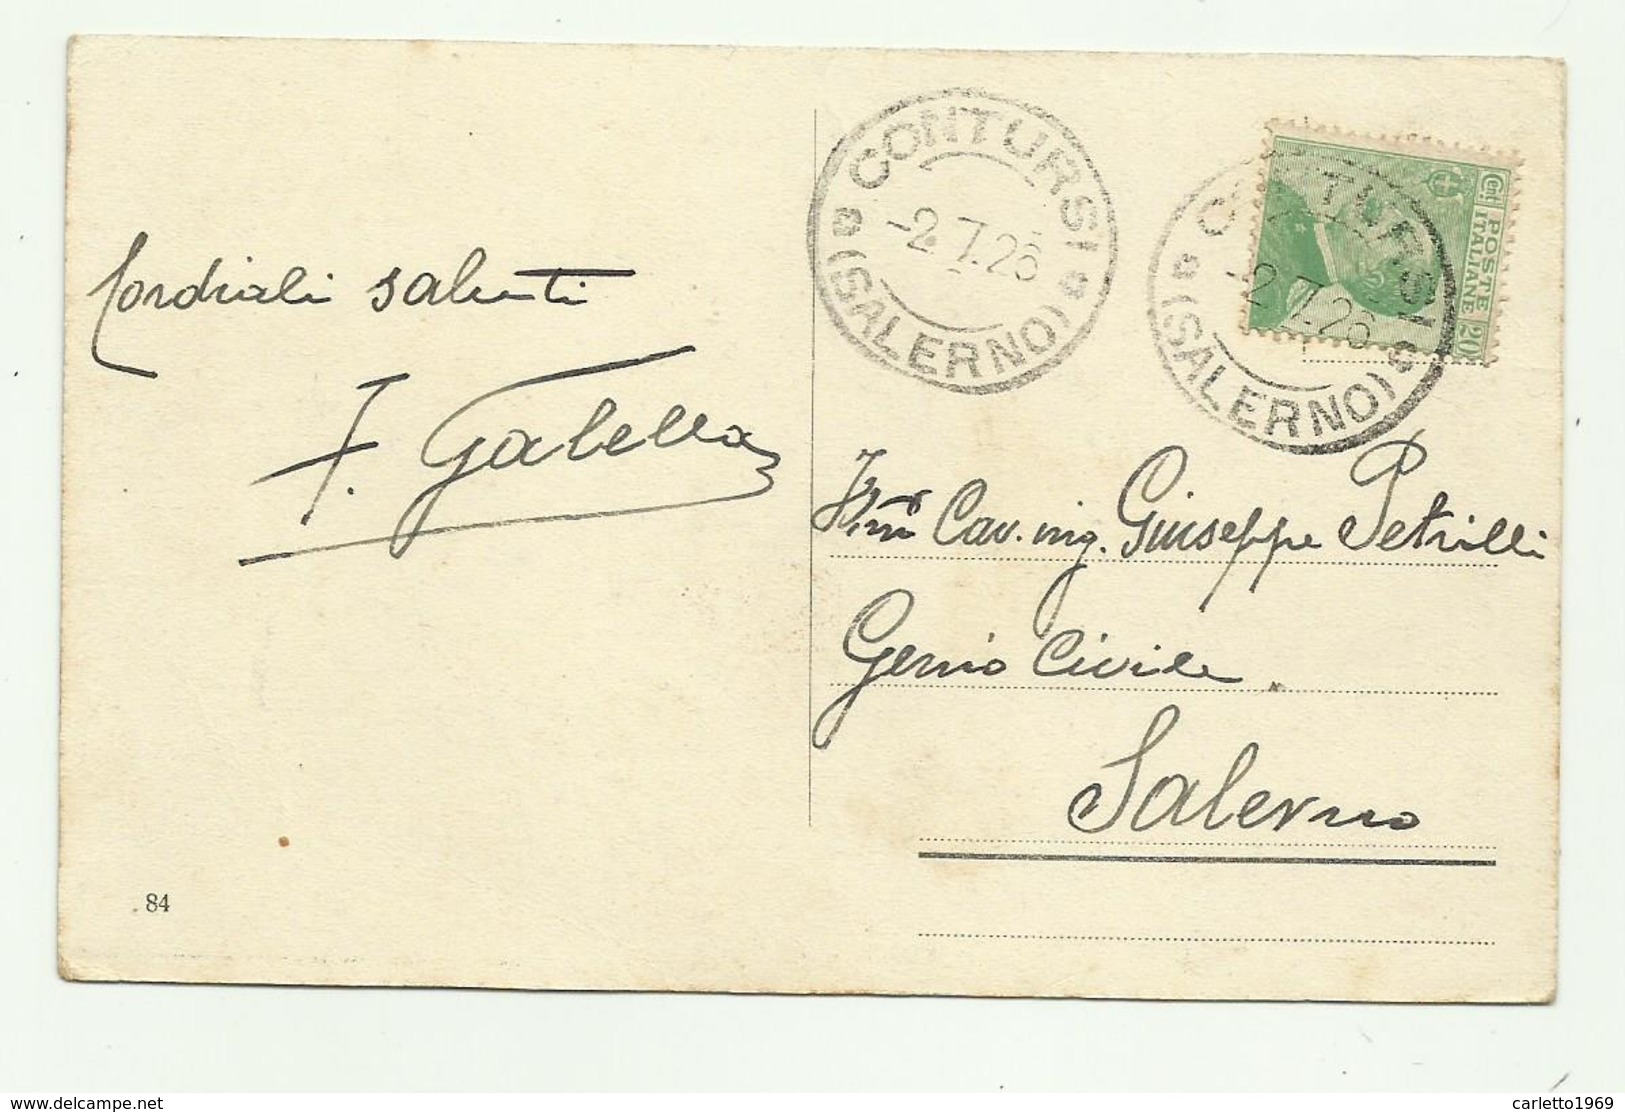 Cordiali saluti
F. Galella
CONTURSI
-2.7.26
(SALERNO)
CONTURSI
-2.7.26
(SALERNO)
Cent
POSTE
ITALIANE
20
Cav. ing. Giuseppe Petrilli
Genio Civile
Salerno
84
www.delcampe.net
carletto1969